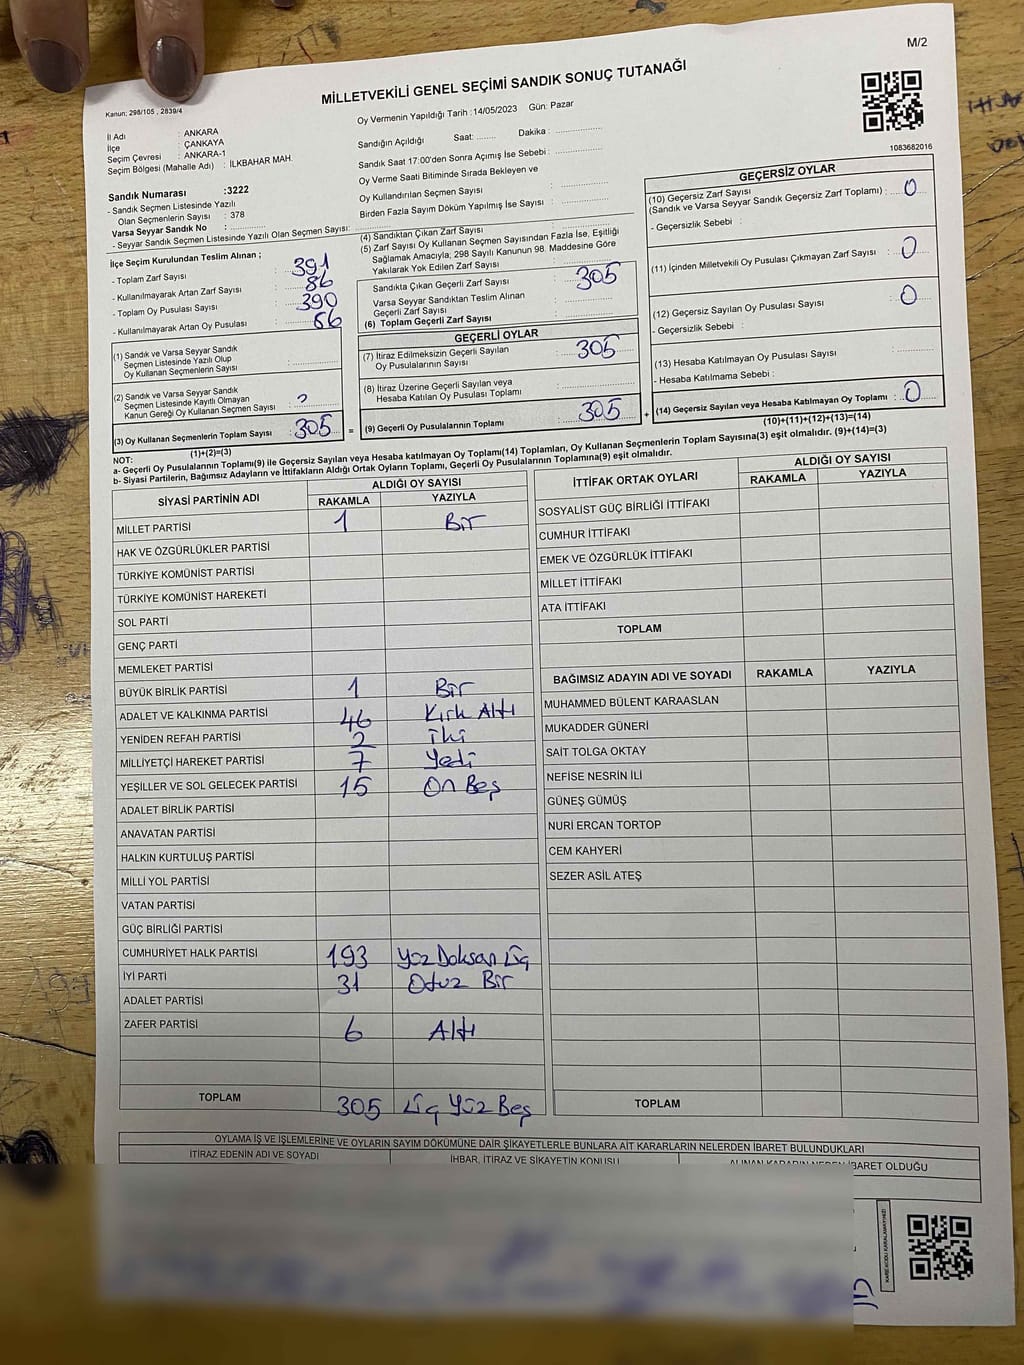 M/2
MİLLETVEKİLİ GENEL SEÇİMİ SANDIK SONUÇ TUTANAĞI
Kanun: 298/105 , 2839/4
İl Adı : ANKARA
İlçe : ÇANKAYA
Seçim Çevresi : ANKARA-1
Seçim Bölgesi (Mahalle Adı) : İLKBAHAR MAH.
Sandık Numarası :3222
- Sandık Seçmen Listesinde Yazılı
Olan Seçmenlerin Sayısı : 378
Varsa Seyyar Sandık No :
- Seyyar Sandık Seçmen Listesinde Yazılı Olan Seçmen Sayısı:
Oy Vermenin Yapıldığı Tarih : 14/05/2023 Gün: Pazar
Sandığın Açıldığı Saat: Dakika :
Sandık Saat 17:00'den Sonra Açımış İse Sebebi :
Oy Verme Saati Bitiminde Sırada Bekleyen ve
Oy Kullandırılan Seçmen Sayısı :
Birden Fazla Sayım Döküm Yapılmış İse Sayısı :
1083682016
İlçe Seçim Kurulundan Teslim Alınan ;
- Toplam Zarf Sayısı : 391
- Kullanılmayarak Artan Zarf Sayısı : 86
- Toplam Oy Pusulası Sayısı : 390
- Kullanılmayarak Artan Oy Pusulası :
(1) Sandık ve Varsa Seyyar Sandık
Seçmen Listesinde Yazılı Olup
Oy Kullanan Seçmenlerin Sayısı :
(2) Sandık ve Varsa Seyyar Sandık
Seçmen Listesinde Kayıtlı Olmayan
Kanun Gereği Oy Kullanan Seçmen Sayısı :
(3) Oy Kullanan Seçmenlerin Toplam Sayısı : 305
(1)+(2)=(3)
(4) Sandıktan Çıkan Zarf Sayısı :
(5) Zarf Sayısı Oy Kullanan Seçmen Sayısından Fazla İse, Eşitliği
Sağlamak Amacıyla; 298 Sayılı Kanunun 98. Maddesine Göre
Yakılarak Yok Edilen Zarf Sayısı :
Sandıkta Çıkan Geçerli Zarf Sayısı : 305
Varsa Seyyar Sandıktan Teslim Alınan
Geçerli Zarf Sayısı :
(6) Toplam Geçerli Zarf Sayısı :
GEÇERLİ OYLAR
(7) İtiraz Edilmeksizin Geçerli Sayılan
Oy Pusulalarının Sayısı : 305
(8) İtiraz Üzerine Geçerli Sayılan veya
Hesaba Katılan Oy Pusulası Toplamı :
= (9) Geçerli Oy Pusulalarının Toplamı : 305 +
GEÇERSİZ OYLAR
(10) Geçersiz Zarf Sayısı
(Sandık ve Varsa Seyyar Sandık Geçersiz Zarf Toplamı) : 0
- Geçersizlik Sebebi :
(11) İçinden Milletvekili Oy Pusulası Çıkmayan Zarf Sayısı : 0
(12) Geçersiz Sayılan Oy Pusulası Sayısı : 0
- Geçersizlik Sebebi :
(13) Hesaba Katılmayan Oy Pusulası Sayısı :
- Hesaba Katılmama Sebebi :
(14) Geçersiz Sayılan veya Hesaba Katılmayan Oy Toplamı : 0
(10)+(11)+(12)+(13)=(14)
NOT:
a- Geçerli Oy Pusulalarının Toplamı(9) ile Geçersiz Sayılan veya Hesaba katılmayan Oy Toplamı(14) Toplamları, Oy Kullanan Seçmenlerin Toplam Sayısına(3) eşit olmalıdır. (9)+(14)=(3)
b- Siyasi Partilerin, Bağımsız Adayların ve İttifakların Aldığı Ortak Oyların Toplamı, Geçerli Oy Pusulalarının Toplamına(9) eşit olmalıdır.
SİYASİ PARTİNİN ADI ALDIĞI OY SAYISI
RAKAMLA YAZIYLA
MİLLET PARTİSİ 1 Bir
HAK VE ÖZGÜRLÜKLER PARTİSİ
TÜRKİYE KOMÜNİST PARTİSİ
TÜRKİYE KOMÜNİST HAREKETİ
SOL PARTİ
GENÇ PARTİ
MEMLEKET PARTİSİ
BÜYÜK BİRLİK PARTİSİ 1 Bir
ADALET VE KALKINMA PARTİSİ 46 Kırk Altı
YENİDEN REFAH PARTİSİ 2 iki
MİLLİYETÇİ HAREKET PARTİSİ 7 Yedi
YEŞİLLER VE SOL GELECEK PARTİSİ 15 On Beş
ADALET BİRLİK PARTİSİ
ANAVATAN PARTİSİ
HALKIN KURTULUŞ PARTİSİ
MİLLİ YOL PARTİSİ
VATAN PARTİSİ
GÜÇ BİRLİĞİ PARTİSİ
CUMHURİYET HALK PARTİSİ 193 Yüz Doksan Üç
İYİ PARTİ 31 Otuz Bir
ADALET PARTİSİ
ZAFER PARTİSİ 6 Altı
TOPLAM 305 Üç Yüz Beş
İTTİFAK ORTAK OYLARI ALDIĞI OY SAYISI
RAKAMLA YAZIYLA
SOSYALİST GÜÇ BİRLİĞİ İTTİFAKI
CUMHUR İTTİFAKI
EMEK VE ÖZGÜRLÜK İTTİFAKI
MİLLET İTTİFAKI
ATA İTTİFAKI
TOPLAM
BAĞIMSIZ ADAYIN ADI VE SOYADI RAKAMLA YAZIYLA
MUHAMMED BÜLENT KARAASLAN
MUKADDER GÜNERİ
SAİT TOLGA OKTAY
NEFİSE NESRİN İLİ
GÜNEŞ GÜMÜŞ
NURİ ERCAN TORTOP
CEM KAHYERİ
SEZER ASİL ATEŞ
TOPLAM
OYLAMA İŞ VE İŞLEMLERİNE VE OYLARIN SAYIM DÖKÜMÜNE DAİR ŞİKAYETLERLE BUNLARA AİT KARARLARIN NELERDEN İBARET BULUNDUKLARI
İTİRAZ EDENİN ADI VE SOYADI İHBAR, İTİRAZ VE ŞİKAYETİN KONUSU ALINAN KARARIN NEDEN İBARET OLDUĞU